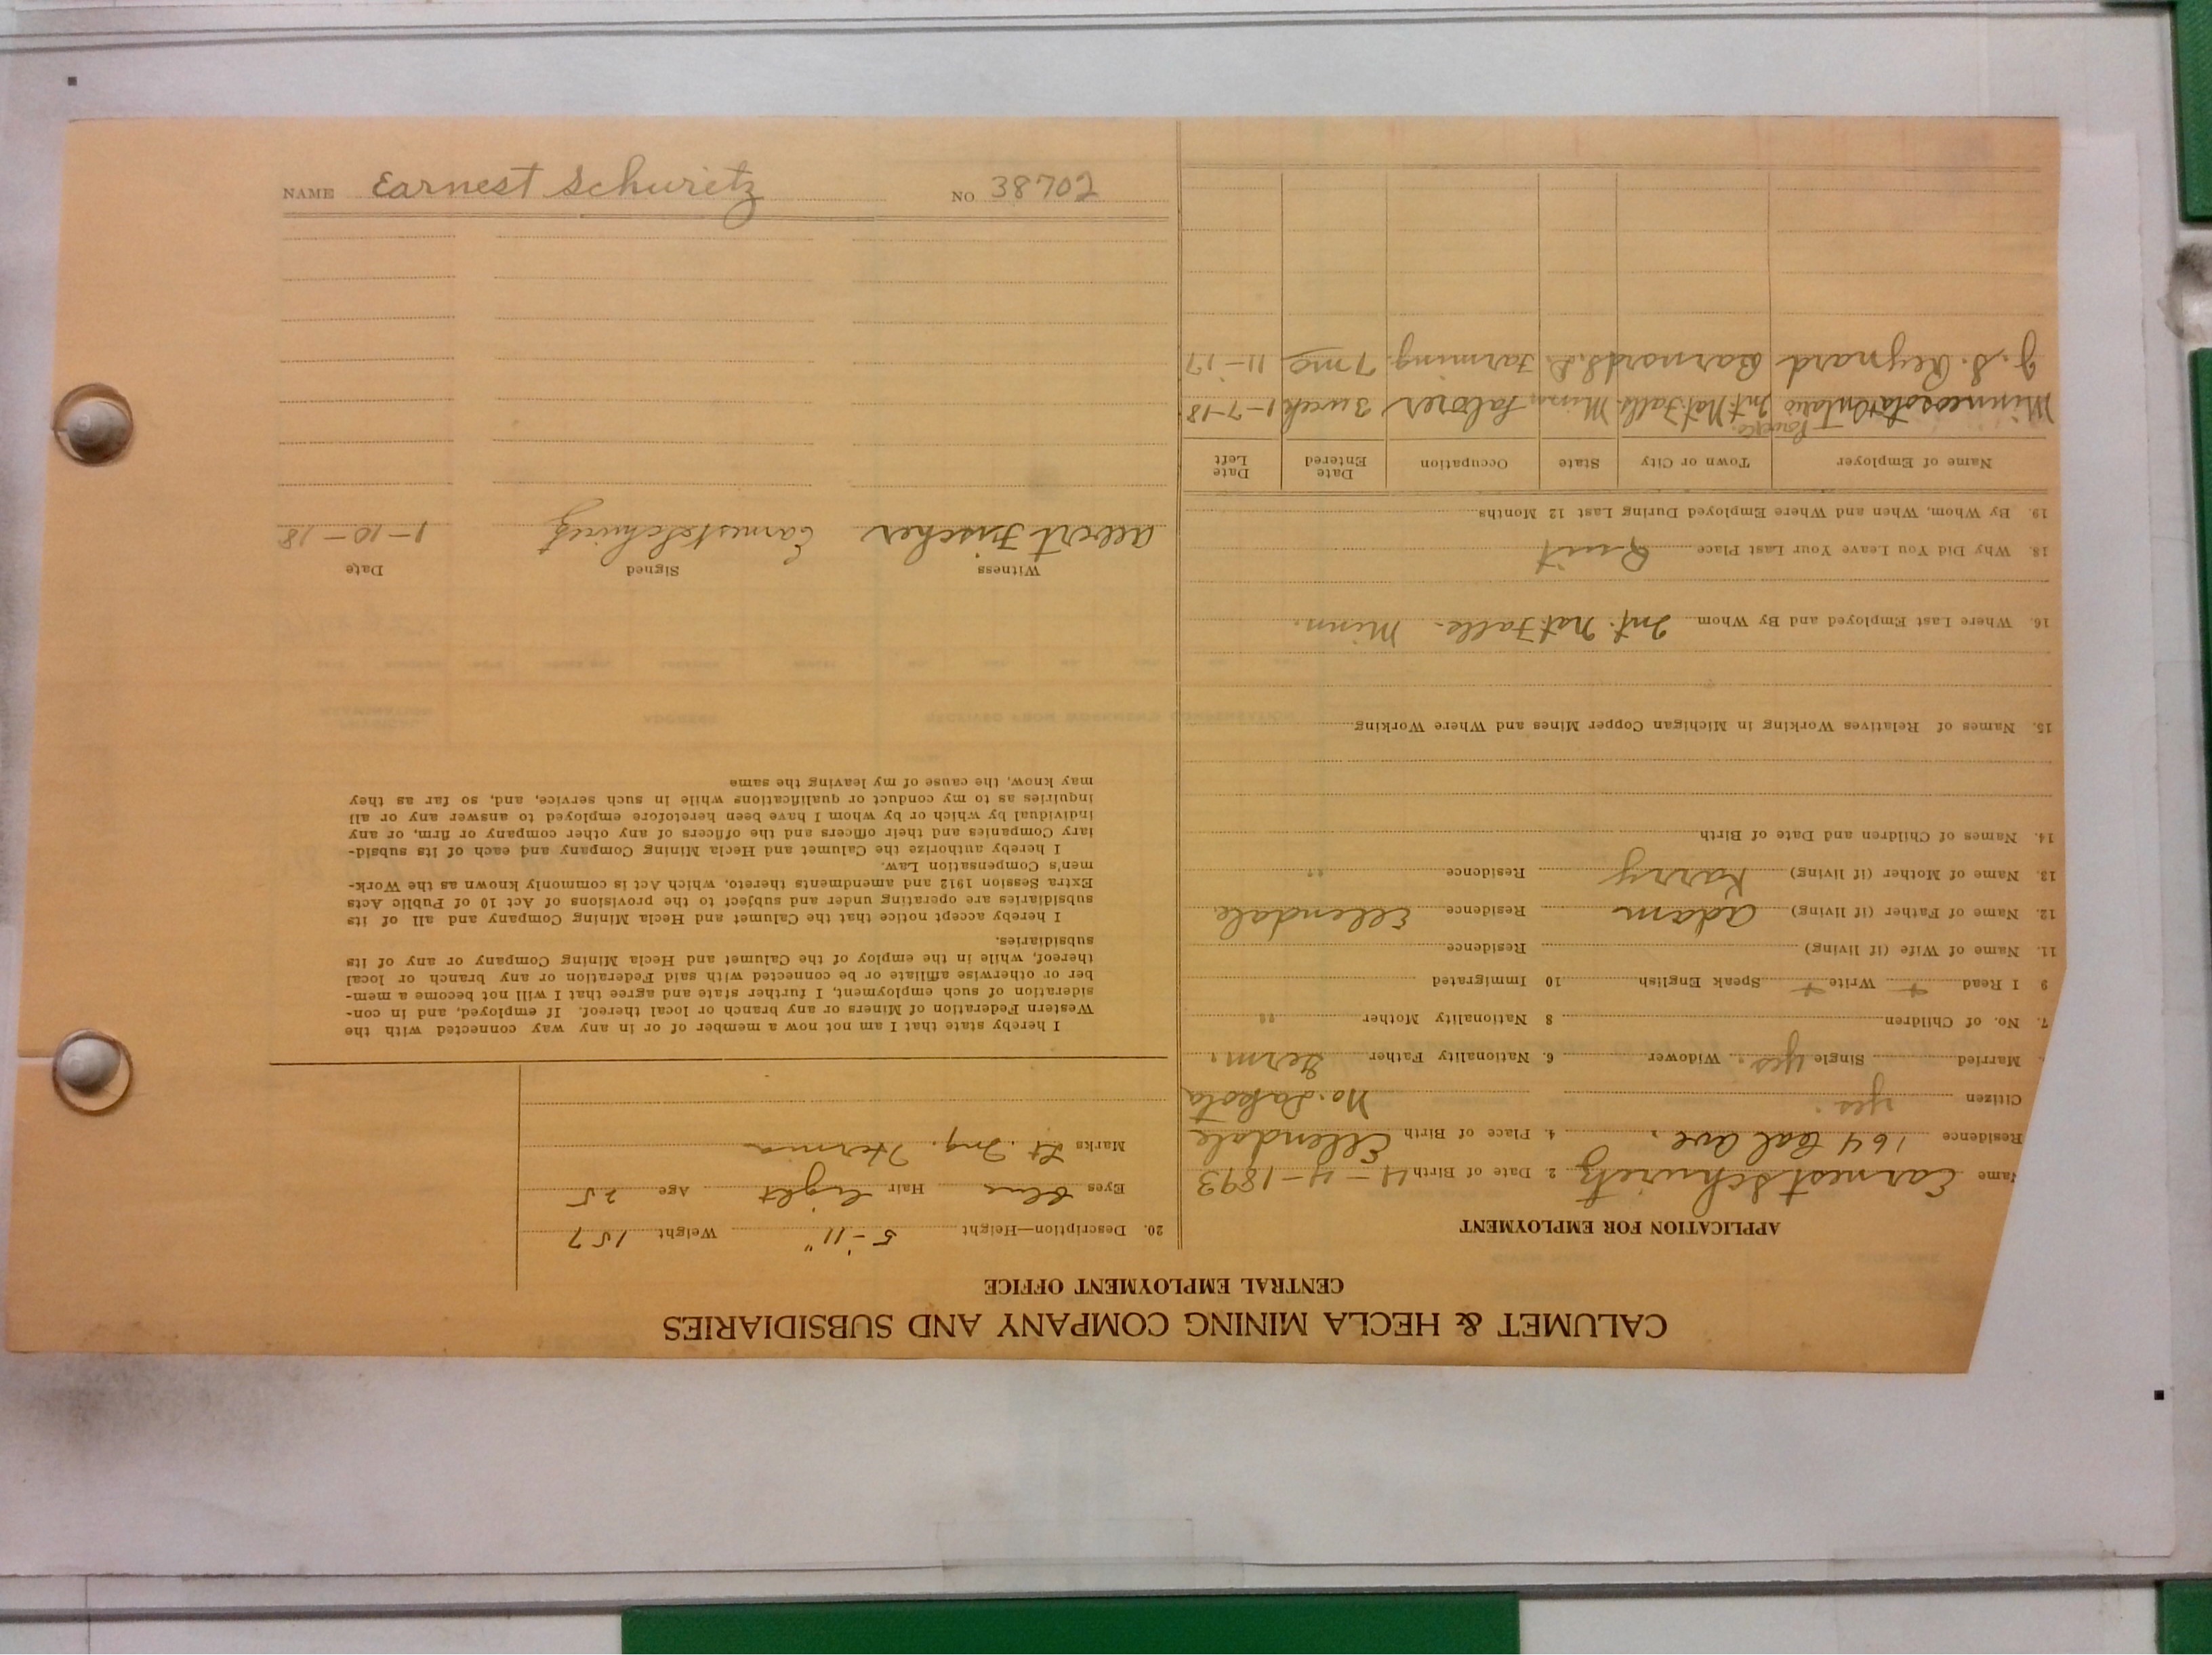 CALUMET & HECLA MINING COMPANY AND SUBSIDIARIES
CENTRAL EMPLOYMENT OFFICE
APPLICATION FOR EMPLOYMENT
Name Earnest Schurietz 2. Date of Birth 4-4-1893
Residence 164 Coal Ave, 4. Place of Birth Ellendale
Citizen yes. No. Dakota
Married Single yes. Widower 6. Nationality Father Germ.
7. No. of Children 8 Nationality Mother "
9 I Read + Write + Speak English 10 Immigrated
11. Name of Wife (if living) Residence
12. Name of Father (if living) Adam Residence Ellendale
13. Name of Mother (if living) Karry Residence "
14. Names of Children and Date of Birth
15. Names of Relatives Working in Michigan Copper Mines and Where Working
16. Where Last Employed and By Whom Int. Nat. Falls. Minn.
18. Why Did You Leave Your Last Place Quit
19. By Whom, When and Where Employed During Last 12 Months
Name of Employer Town or City State Occupation Date Entered Date Left
Minnesota & Ontario Power Co. Int. Nat. Falls. Minn Laborer 3 week 1-7-18
J. S. Reynard Barnard S.D. Farming. 7 mo 11-17
20. Description—Height 5-11" Weight 157
Eyes blue Hair light Age 25
Marks Lt. Ing. Hernia
I hereby state that I am not now a member of or in any way connected with the
Western Federation of Miners or any branch or local thereof. If employed, and in con-
sideration of such employment, I further state and agree that I will not become a mem-
ber or otherwise affiliate or be connected with said Federation or any branch or local
thereof, while in the employ of the Calumet and Hecla Mining Company or any of its
subsidiaries.
I hereby accept notice that the Calumet and Hecla Mining Company and all of its
subsidiaries are operating under and subject to the provisions of Act 10 of Public Acts
Extra Session 1912 and amendments thereto, which Act is commonly known as the Work-
men's Compensation Law.
I hereby authorize the Calumet and Hecla Mining Company and each of its subsid-
iary Companies and their officers and the officers of any other company or firm, or any
individual by which or by whom I have been heretofore employed to answer any or all
inquiries as to my conduct or qualifications while in such service, and, so far as they
may know, the cause of my leaving the same
Witness Signed Date
Albert Fischer Earnest Schurietz 1-10-18
NAME Earnest Schurietz NO. 38702